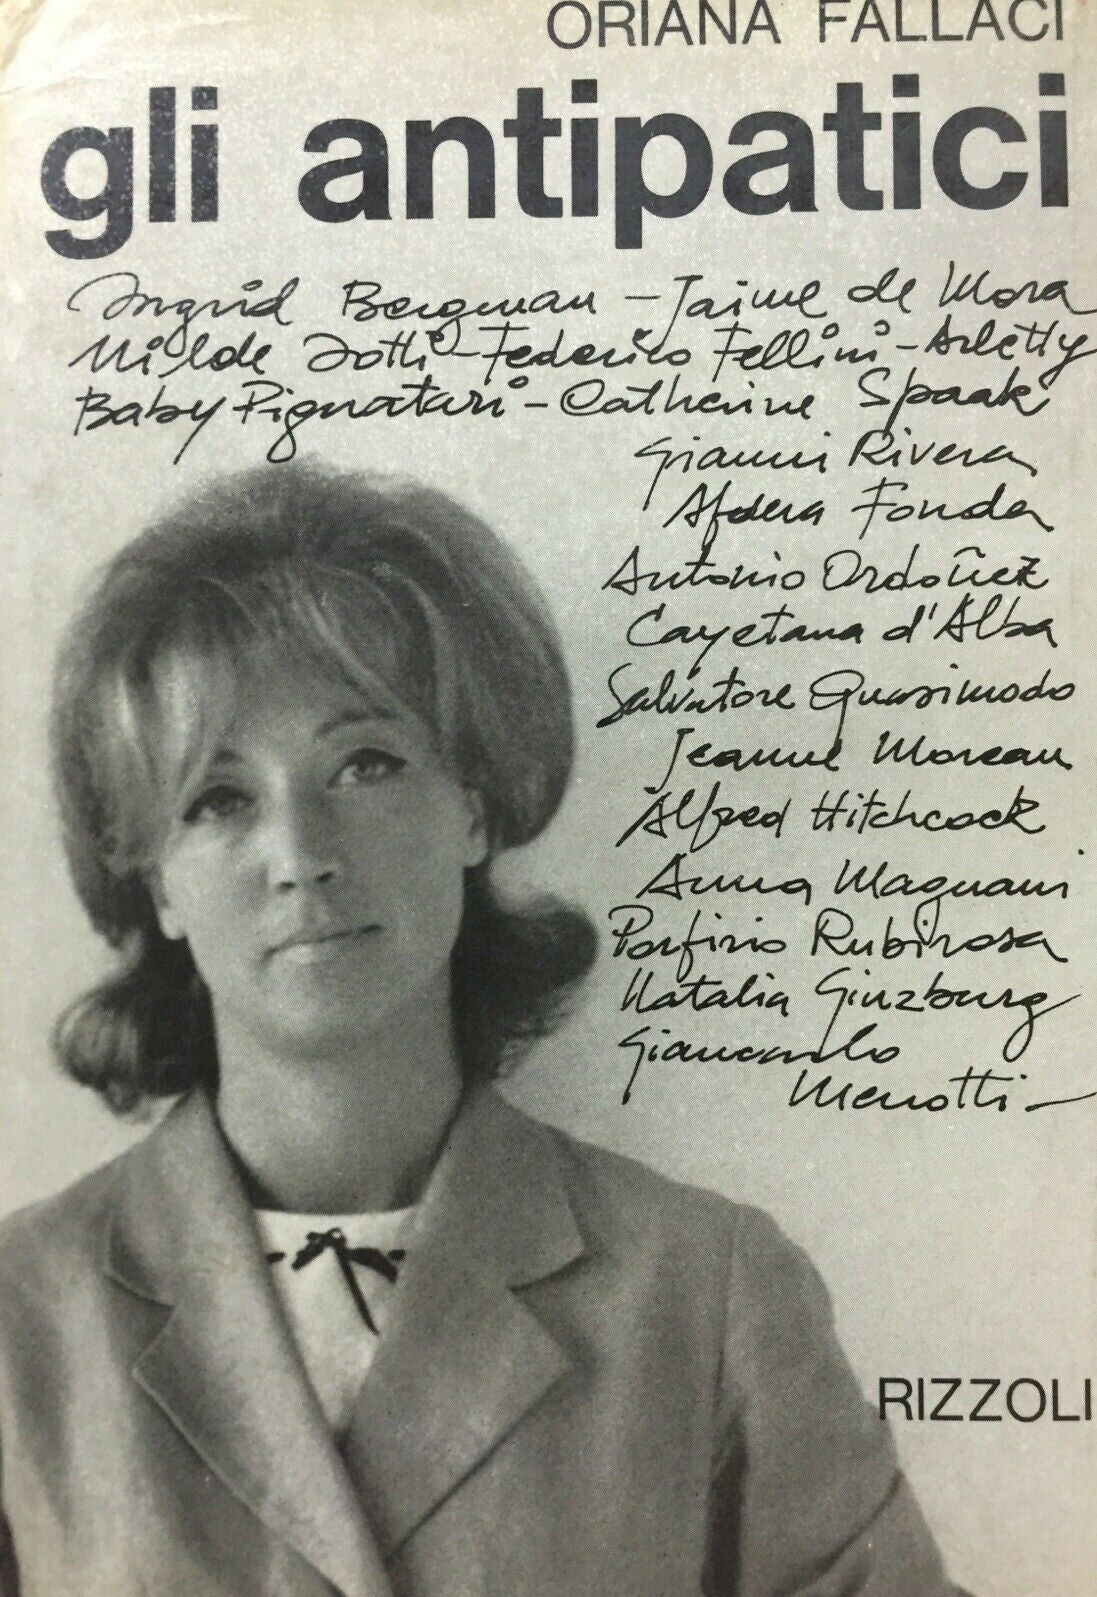 ORIANA FALLACI
gli antipatici
Ingrid Bergman - Jaime de Mora
Nilde Jotti - Federico Fellini - Arletty
Baby Pignatari - Catherine Spaak
Gianni Rivera
Afdera Fonda
Antonio Ordoñez
Cayetana d'Alba
Salvatore Quasimodo
Jeanne Moreau
Alfred Hitchcock
Anna Magnani
Porfirio Rubirosa
Natalia Ginzburg
Giancarlo
Menotti -
RIZZOLI